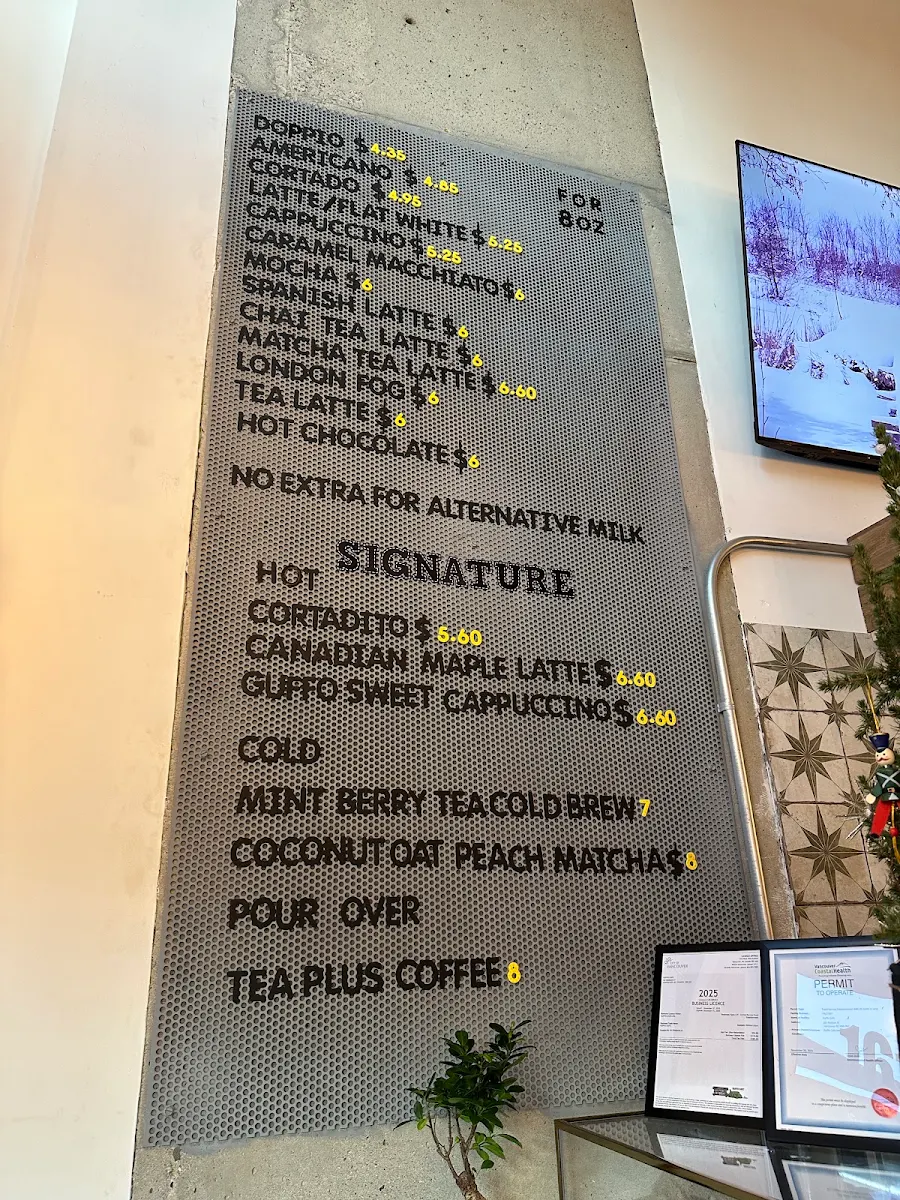 DOPPIO $4.35
AMERICANO $4.65
CORTADO $4.95
FOR
8OZ
LATTE/FLAT WHITE $5.25
CAPPUCCINO $5.25
CARAMEL MACCHIATO $6
MOCHA $6
SPANISH LATTE $6
CHAI TEA LATTE $6
MATCHA TEA LATTE $6.60
LONDON FOG $6
TEA LATTE $6
HOT CHOCOLATE $6
NO EXTRA FOR ALTERNATIVE MILK
SIGNATURE
HOT
CORTADITO $5.60
CANADIAN MAPLE LATTE $6.60
GUFFO SWEET CAPPUCCINO $6.60
COLD
MINT BERRY TEA COLD BREW 7
COCONUT OAT PEACH MATCHA $8
POUR OVER
TEA PLUS COFFEE 8
2025
BUSINESS LICENCE
Vancouver
CoastalHealth
PERMIT
TO OPERATE